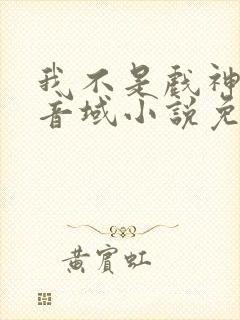 我不是戲神
音域小說免
黃賓虹